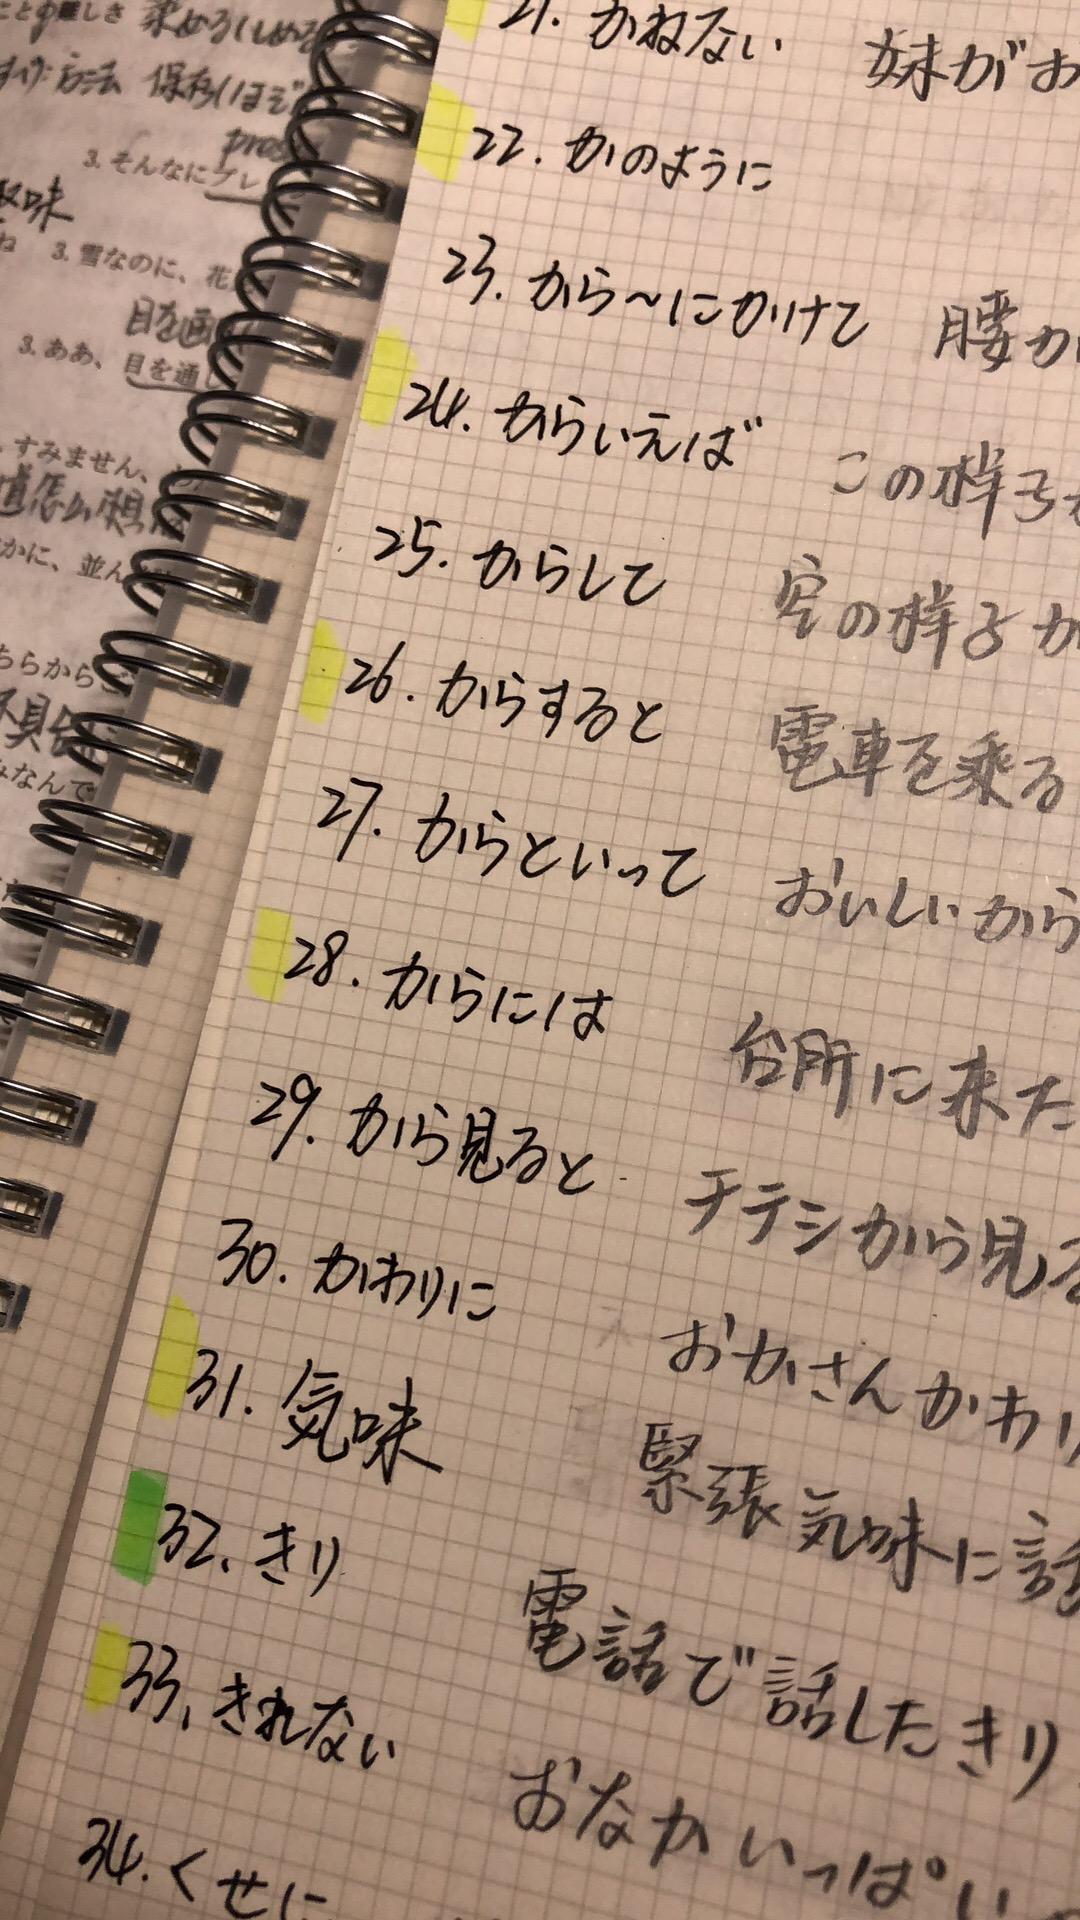 ことの難しさ
方法 保存
pres
3. そんなにグレ
味
3. 雪なのに、花
目を画
3. ああ、目を通し
すみません、
かに、並ん
ちらから
みなんで
21. かねない 妹がお
22. かのように
23. から〜にかけて 腰か
24. からいえば この様子
25. からして 空の様子か
26. からすると 電車を乗る
27. からといって おいしいから
28. からには 台所に来た
29. から見ると チテシから見る
30. かわりに おかさんかわり
31. 気味 緊張気味に話
32. きり 電話で話したきり
33. きれない おなかいっぱい
34. くせに